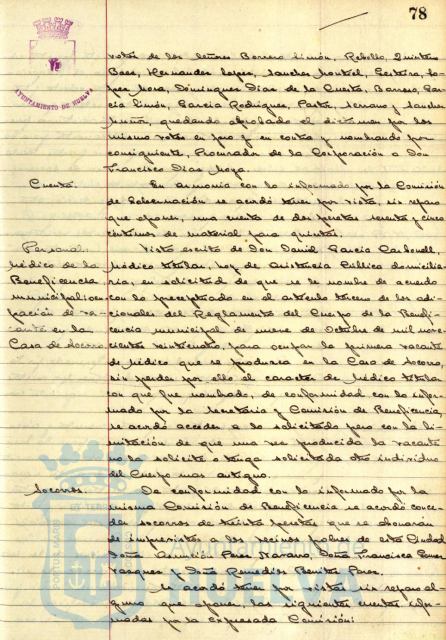 78
AYUNTAMIENTO DE HUELVA
votos de los señores Borrero Limón, Rebollo, Quintero
Baez, Hernandez Lopez, Sanchez Montiel, Seisdedos, Lo
pez Mora, Dominguez Diaz de la Cuesta, Barrero, Gar
cia Limón, Garcia Rodriguez, Pastor, Serrano y Sanchez
Muñoz, quedando aprobado el dictamen por los
mismos votos en pro y en contra y nombrando por
consiguiente, Procurador de la Corporación a Don
Francisco Diaz Moya.
Cuenta.
En armonía con lo informado por la Comisión
de Gobernación se acordó tener por vista, sin reparo
que oponer, una cuenta de dos pesetas sesenta y cinco
céntimos de material para quintas.
Personal:
Médico de la
Beneficencia
municipal: ocu
pación de va
cante en la
Casa de Socorro
Visto escrito de Don Daniel Garcia Carbonell,
Médico titular, hoy de Asistencia Pública domicilia
ria, en solicitud de que se le nombre de acuerdo
con lo preceptuado en el artículo tercero de los adi
cionales del Reglamento del Cuerpo de la Benefi
cencia municipal de nueve de Octubre de mil nove
cientos veinticuatro, para ocupar la primera vacante
de Médico que se produzca en la Casa de Socorro,
sin perder por ello el caracter de Médico titular
con que fue nombrado, de conformidad con lo infor
mado por la Secretaría y Comisión de Beneficencia,
se acordó acceder a lo solicitado pero con la li
mitación de que una vez producida la vacante
no la solicite o tenga solicitada otro individuo
del Cuerpo mas antiguo.
Socorros.
De conformidad con lo informado por la
misma Comisión de Beneficencia se acordó conce
der socorros de treinta pesetas que se abonarán
de imprevistos a los vecinos pobres de esta Ciudad
Doña Asunción Perez Navarro, Doña Francisca Gomez
Vazquez y Doña Remedios Benitez Perez.
Se acordó tener por vistas sin reparo al
guno que oponer, las siguientes cuentas infor
madas por la expresada Comisión:
Ayuntamiento de
HUELVA